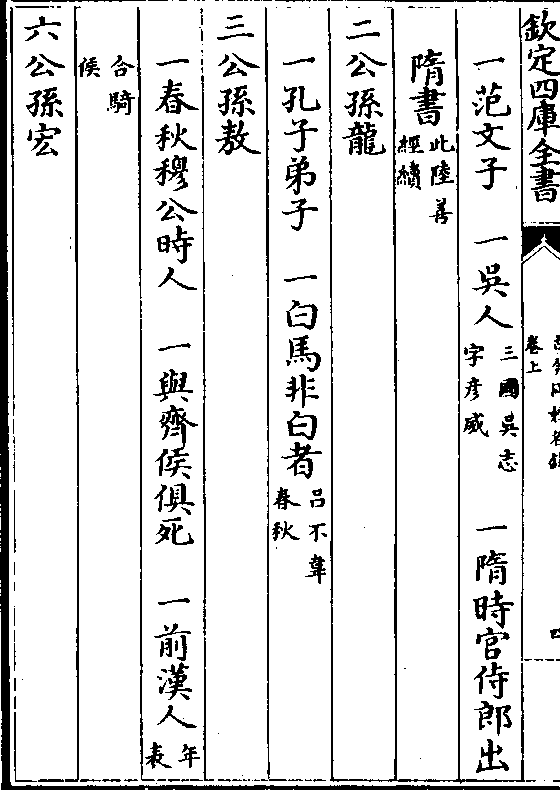 欽定四庫全書
卷上
一范文子 一吳人 三國吳志字彥威 一隋時官侍郎出
隋書 此陸善經續
二公孫龍
一孔子弟子 一白馬非白者 吕不韋春秋
三公孫敖
一春秋穆公時人 一與齊侯俱死 一前漢人 年表
合騎侯
六公孫宏